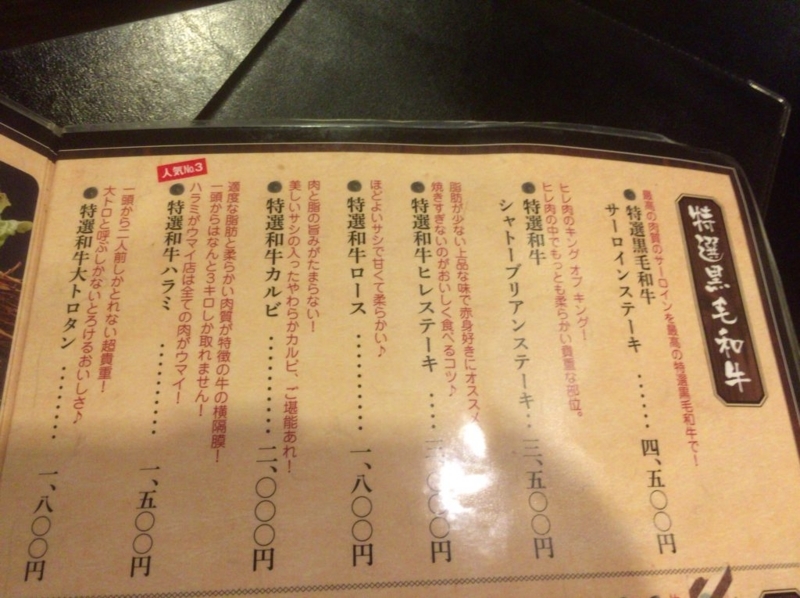 特選黒毛和牛
最高の肉質のサーロインを最高の特選黒毛和牛で！
特選黒毛和牛
サーロインステーキ ‥‥‥ 四、五〇〇円
ヒレ肉のキング オブ キング！
ヒレ肉の中でもっとも柔らかい貴重な部位。
特選和牛
シャトーブリアンステーキ‥ 三、五〇〇円
脂肪が少ない上品な味で赤身好きにオススメ
焼きすぎないのがおいしく食べるコツ♪
特選和牛ヒレステーキ ‥‥ 〇〇円
ほどよいサシで甘くて柔らかい♪
特選和牛ロース ‥‥‥‥‥ 一、八〇〇円
肉と脂の旨みがたまらない！
美しいサシの入ったやわらかカルビ、ご堪能あれ！
特選和牛カルビ ‥‥‥‥‥ 二、〇〇〇円
人気№3
適度な脂肪と柔らかい肉質が特徴の牛の横隔膜！
一頭からはなんと3キロしか取れません！
ハラミがウマイ店は全ての肉がウマイ！
特選和牛ハラミ ‥‥‥‥‥ 一、五〇〇円
一頭から二人前しかとれない超貴重！
大トロと呼ぶしかないとろけるおいしさ♪
特選和牛大トロタン ‥‥‥‥ 一、八〇〇円